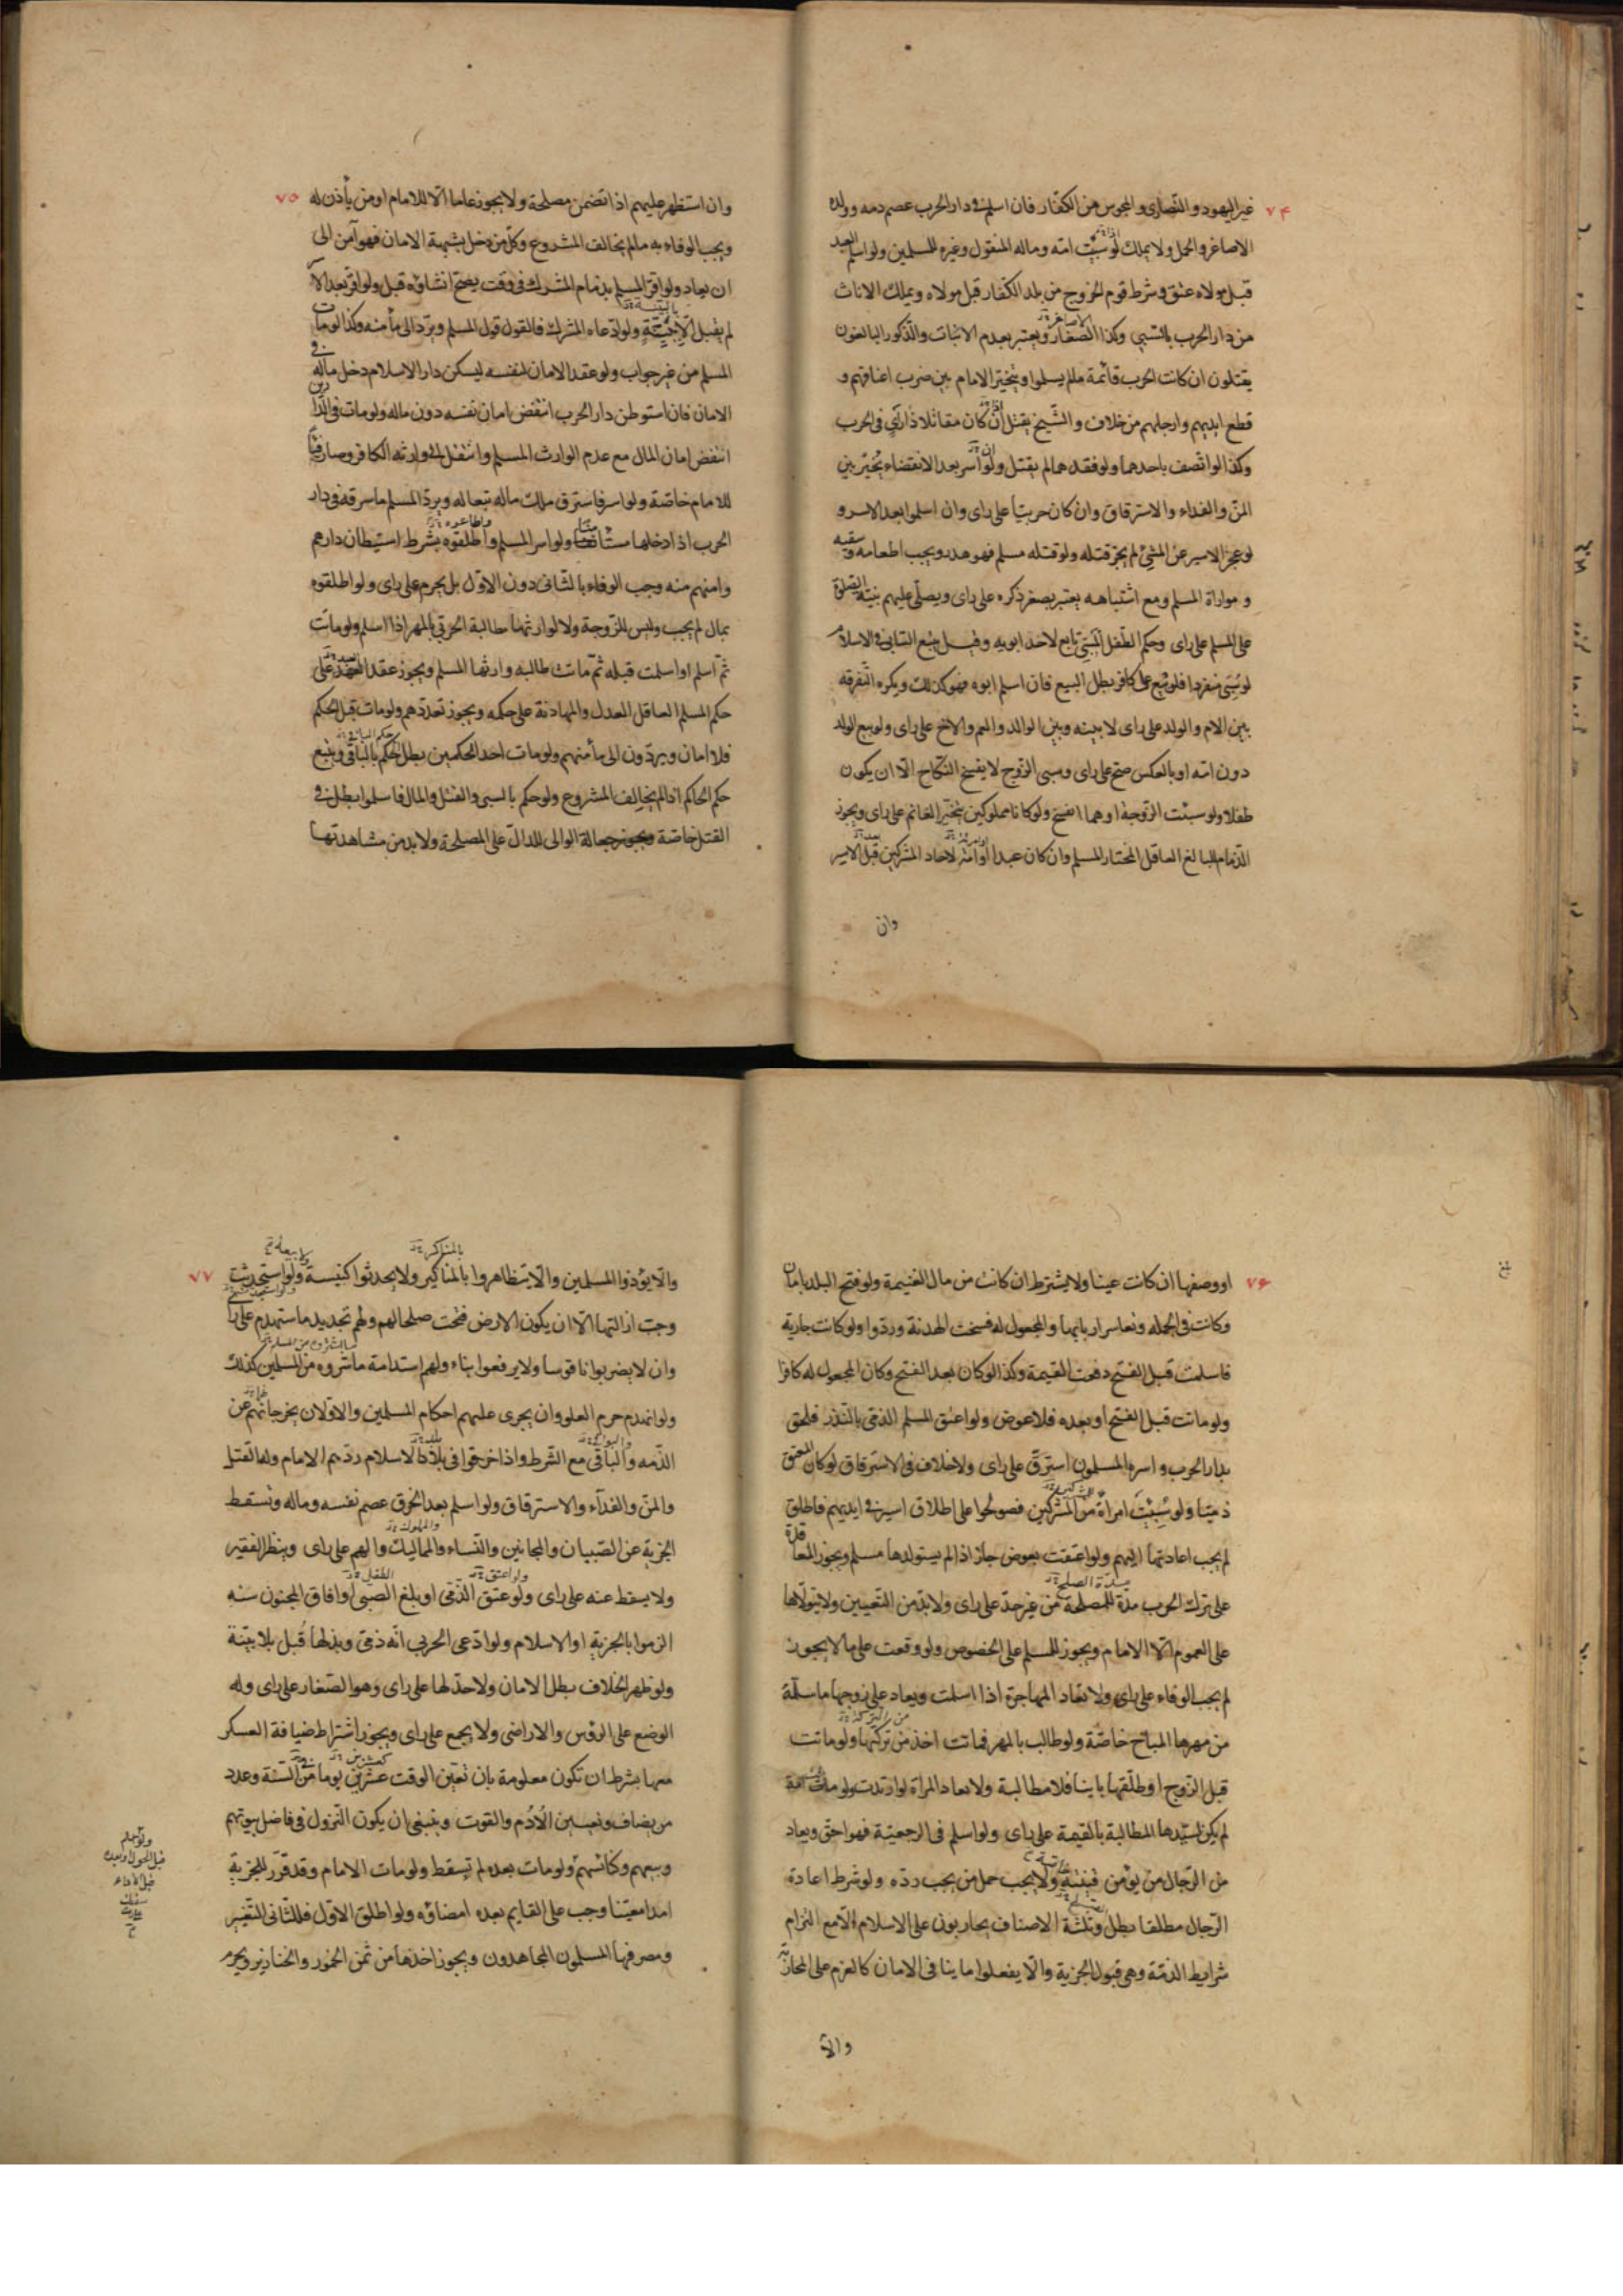 ۷۴
غير اليهود و النّصارى و المجوس من الكفّار فان اسلم فى دار الحرب عصم دمه و ولده
الاصاغر و الحمل و لا يملك لو سبيت امّه و ماله المنقول و غيره للمسلمين و لو اسلم العبد
قبل مولاه عتق و شرط قوم الخروج من بلد الكفّار قبل مولاه و يملك الاناث
من دار الحرب بالسّبي و كذا الصّغار و يعتبر بعدم الانبات و الذّكور البالغون
يقتلون ان كانت الحرب قائمة ما لم يسلموا و يتخيّر الامام بين ضرب اعناقهم و
قطع ايديهم و ارجلهم من خلاف و الشّيخ يقتل ان كان مقاتلا ذا رأى فى الحرب
و كذا لو اتّصف باحدهما و لو فقدهما لم يقتل و لو اسر بعد الانقضاء يُخيّر بين
المنّ و الفداء و الاسترقاق و ان كان حربيّا على راى و ان اسلموا بعد الاسر و
لو عجز الاسير عن المشى لم يجز قتله و لو قتله مسلم فهو هدر و يجب اطعامه و سقيه
و مواراة المسلم و مع اشتباهه يعتبر بصغر ذكره على راى و يصلّى عليهم بنيّة الصّلوة
على المسلم على راى و حكم الطّفل المَسْبىّ تابع لاحد ابويه و قيل يتبع السّابى فى الاسلام
لو سُبِىَ منفردا فلو بيع على كافر بطل البيع فان اسلم ابوه فهو كذلك و يكره التّفرقه
بين الام و الولد على راى لا بينه و بين الوالد و العم و الاخ على راى و لو بيع الولد
دون امّه او بالعكس صحّ على راى و سبى الزّوج لا يفسخ النّكاح الّا ان يكون
طفلا و لو سبيت الزّوجة او هما انفسخ و لو كانا مملوكين يتخيّر الغانم على راى و يجوز
الذّمام للبالغ العاقل المختار المسلم و ان كان عبدا او امراة لاحاد المشركين قبل الاسر
وان
۷۵
و ان استظهر عليهم اذا تضمن مصلحة و لا يجوز عاما الّا للامام او من يأذن له
و يجب الوفاء به ما لم يخالف المشروع و كلّ من دخل بشبهة الامان فهو آمن الى
ان يعاد و لو اقرّ المسلم بذمام المشرك فى وقت يصحّ انشاؤه قبل و لو اقرّ بعد الاسر
لم يقبل الّا بِبَيِّنَةٍ و لو ادّعاه المشرك فالقول قول المسلم و يردّ الى مأمنه و كذا لو مات
المسلم من غير جواب و لو عقد الامان لنفسه ليسكن دار الاسلام دخل ماله فى
الامان فان استوطن دار الحرب انتقض امان نفسه دون ماله و لو مات فى الدّارين
انتقض امان المال مع عدم الوارث المسلم و انتقل الى وارثه الكافر و صار فيئا
للامام خاصّة و لو اسر فاسترق ملك ماله تبعا له و يردّ المسلم ما سرقه فى دار
الحرب اذا دخلها مستأمنا و لو اسر المسلم و اطلقوه بشرط استيطان دارهم
و امنهم منه وجب الوفاء بالثّانى دون الاوّل بل يحرم على راى و لو اطلقوه
بمال لم يجب و ليس للزّوجة و لا لوارثها مطالبة الحربي بالمهر اذا اسلم و لو ماتت
ثمّ اسلم او اسلمت قبله ثمّ ماتت طالبه وارثها المسلم و يجوز عقد العهد على
حكم المسلم العاقل العدل و المهادنة على حكمه و يجوز تعدّدهم و لو مات قبل الحكم
فلا امان و يردّون الى مأمنهم و لو مات احد الحكمين بطل حكم الباقى و يتبع
حكم الحاكم اذا لم يخالف المشروع و لو حكم بالسبى و القتل و المال فاسلموا بطل فى
القتل خاصّة و يجوز جعالة الوالى للدالّ على المصلحة و لا بد من مشاهدتها
۷۶
او وصفها ان كانت عينا و لا يشترط ان كانت من مال الغنيمة و لو فتح البلد بامان
و كانت فى الجمله و تعاسر اربابها و المجعول له فسخت الهدنة و ردّوا و لو كانت جارية
فاسلمت قبل الفتح دفعت القيمة و كذا لو كان بعد الفتح و كان المجعول له كافرا
و لو ماتت قبل الفتح او بعده فلا عوض و لو اعتق المسلم الذمّى بالنّذر فلحق
بدار الحرب و اسره المسلمون استرقّ على راى و لا خلاف فى الاسترقاق لو كان المعتق
ذمّيّا و لو سُبِيَتْ امراةٌ من المشركين فصولحوا على اطلاق اسير فى ايديهم فاطلق
لم يجب اعادتها اليهم و لو اعتقت بعوض جاز اذا لم يستولدها مسلم و يجوز المعاقدة
على ترك الحرب مدّة للمصلحة من غير حدّ على راى و لا بدّ من التّعيين و لا يتولّاها
على العموم الّا الامام و يجوز للمسلم على الخصوص و لو وقعت على ما لا يجوز
لم يجب الوفاء على راى و لا تعاد المهاجرة اذا اسلمت و يعاد على زوجها ما سلّمه
من مهرها المباح خاصّة و لو طالب بالمهر فماتت اخذ من تركتها و لو ماتت
قبل الزّوج او طلّقها باينا فلا مطالبة و لا تعاد المراة لو ارتدت و لو هاجرت امة
لم يكن لسيّدها المطالبة بالقيمة على راى و لو اسلم فى الرجعيّة فهو احق و يعاد
من الرّجال من يؤمن فتنته و لا يجب حمل من يجب ردّه و لو شرط اعادة
الرّجال مطلقا بطل و ثلثة الاصناف يحاربون على الاسلام الّا مع التزام
شرايط الذمّة و هى قبول الجزية و الّا يفعلوا ما ينافى الامان كالعزم على المحاربة
والا
۷۷
و الّا يؤذوا المسلمين و الّا يتظاهروا بالمناكير و لا يحدثوا كنيسة و لو استجدّت
وجب ازالتها الّا ان يكون الارض فتحت صلحا لهم و لهم تجديد ما ستهدم على راى
و ان لا يضربوا ناقوسا و لا يرفعوا بناء و لهم استدامة ما شروه من المسلمين كذلك
و لو انهدم حرم العلو و ان يجرى عليهم احكام المسلمين و الاوّلان يخرجانهم عن
الذّمه و الباقى مع الشّرط و اذا خرقوا فى بلاد الاسلام ردّهم الامام و له القتل
و المنّ و الفدآء و الاسترقاق و لو اسلم بعد الخرق عصم نفسه و ماله و تسقط
الجزية عن الصّبيان و المجانين و النّساء و المماليك و الهِم على راى و ينظر الفقير
و لا يسقط عنه على راى و لو عتق الذّمّى او بلغ الصّبى او افاق المجنون سنة
الزموا بالجزية او الاسلام و لو ادّعى الحربى انّه ذمّى و بذلها قُبل بلا بيّنة
و لو ظهر الخلاف بطل الامان و لا حدّ لها على راى و هو الصّغار على راى و له
الوضع على الرؤس و الاراضى و لا يجمع على راى و يجوز اشتراط ضيافة العسكر
معها بشرط ان تكون معلومة بان تعيّن الوقت عشرين يوما من السّنة و عدد
من يضاف و تعيين الاُدُم و القوت و ينبغى ان يكون النّزول فى فاضل بيوتهم
و بيعهم و كنائسهم و لو مات بعده لم تسقط و لو مات الامام و قد قرّر للجزية
امدا معيّنا وجب على القايم بعده امضاؤه و لو اطلق الاوّل فللثّانى التّغيير
و مصرفها المسلمون المجاهدون و يجوز اخذها من ثمن الخمور و الخنازير و يحرم